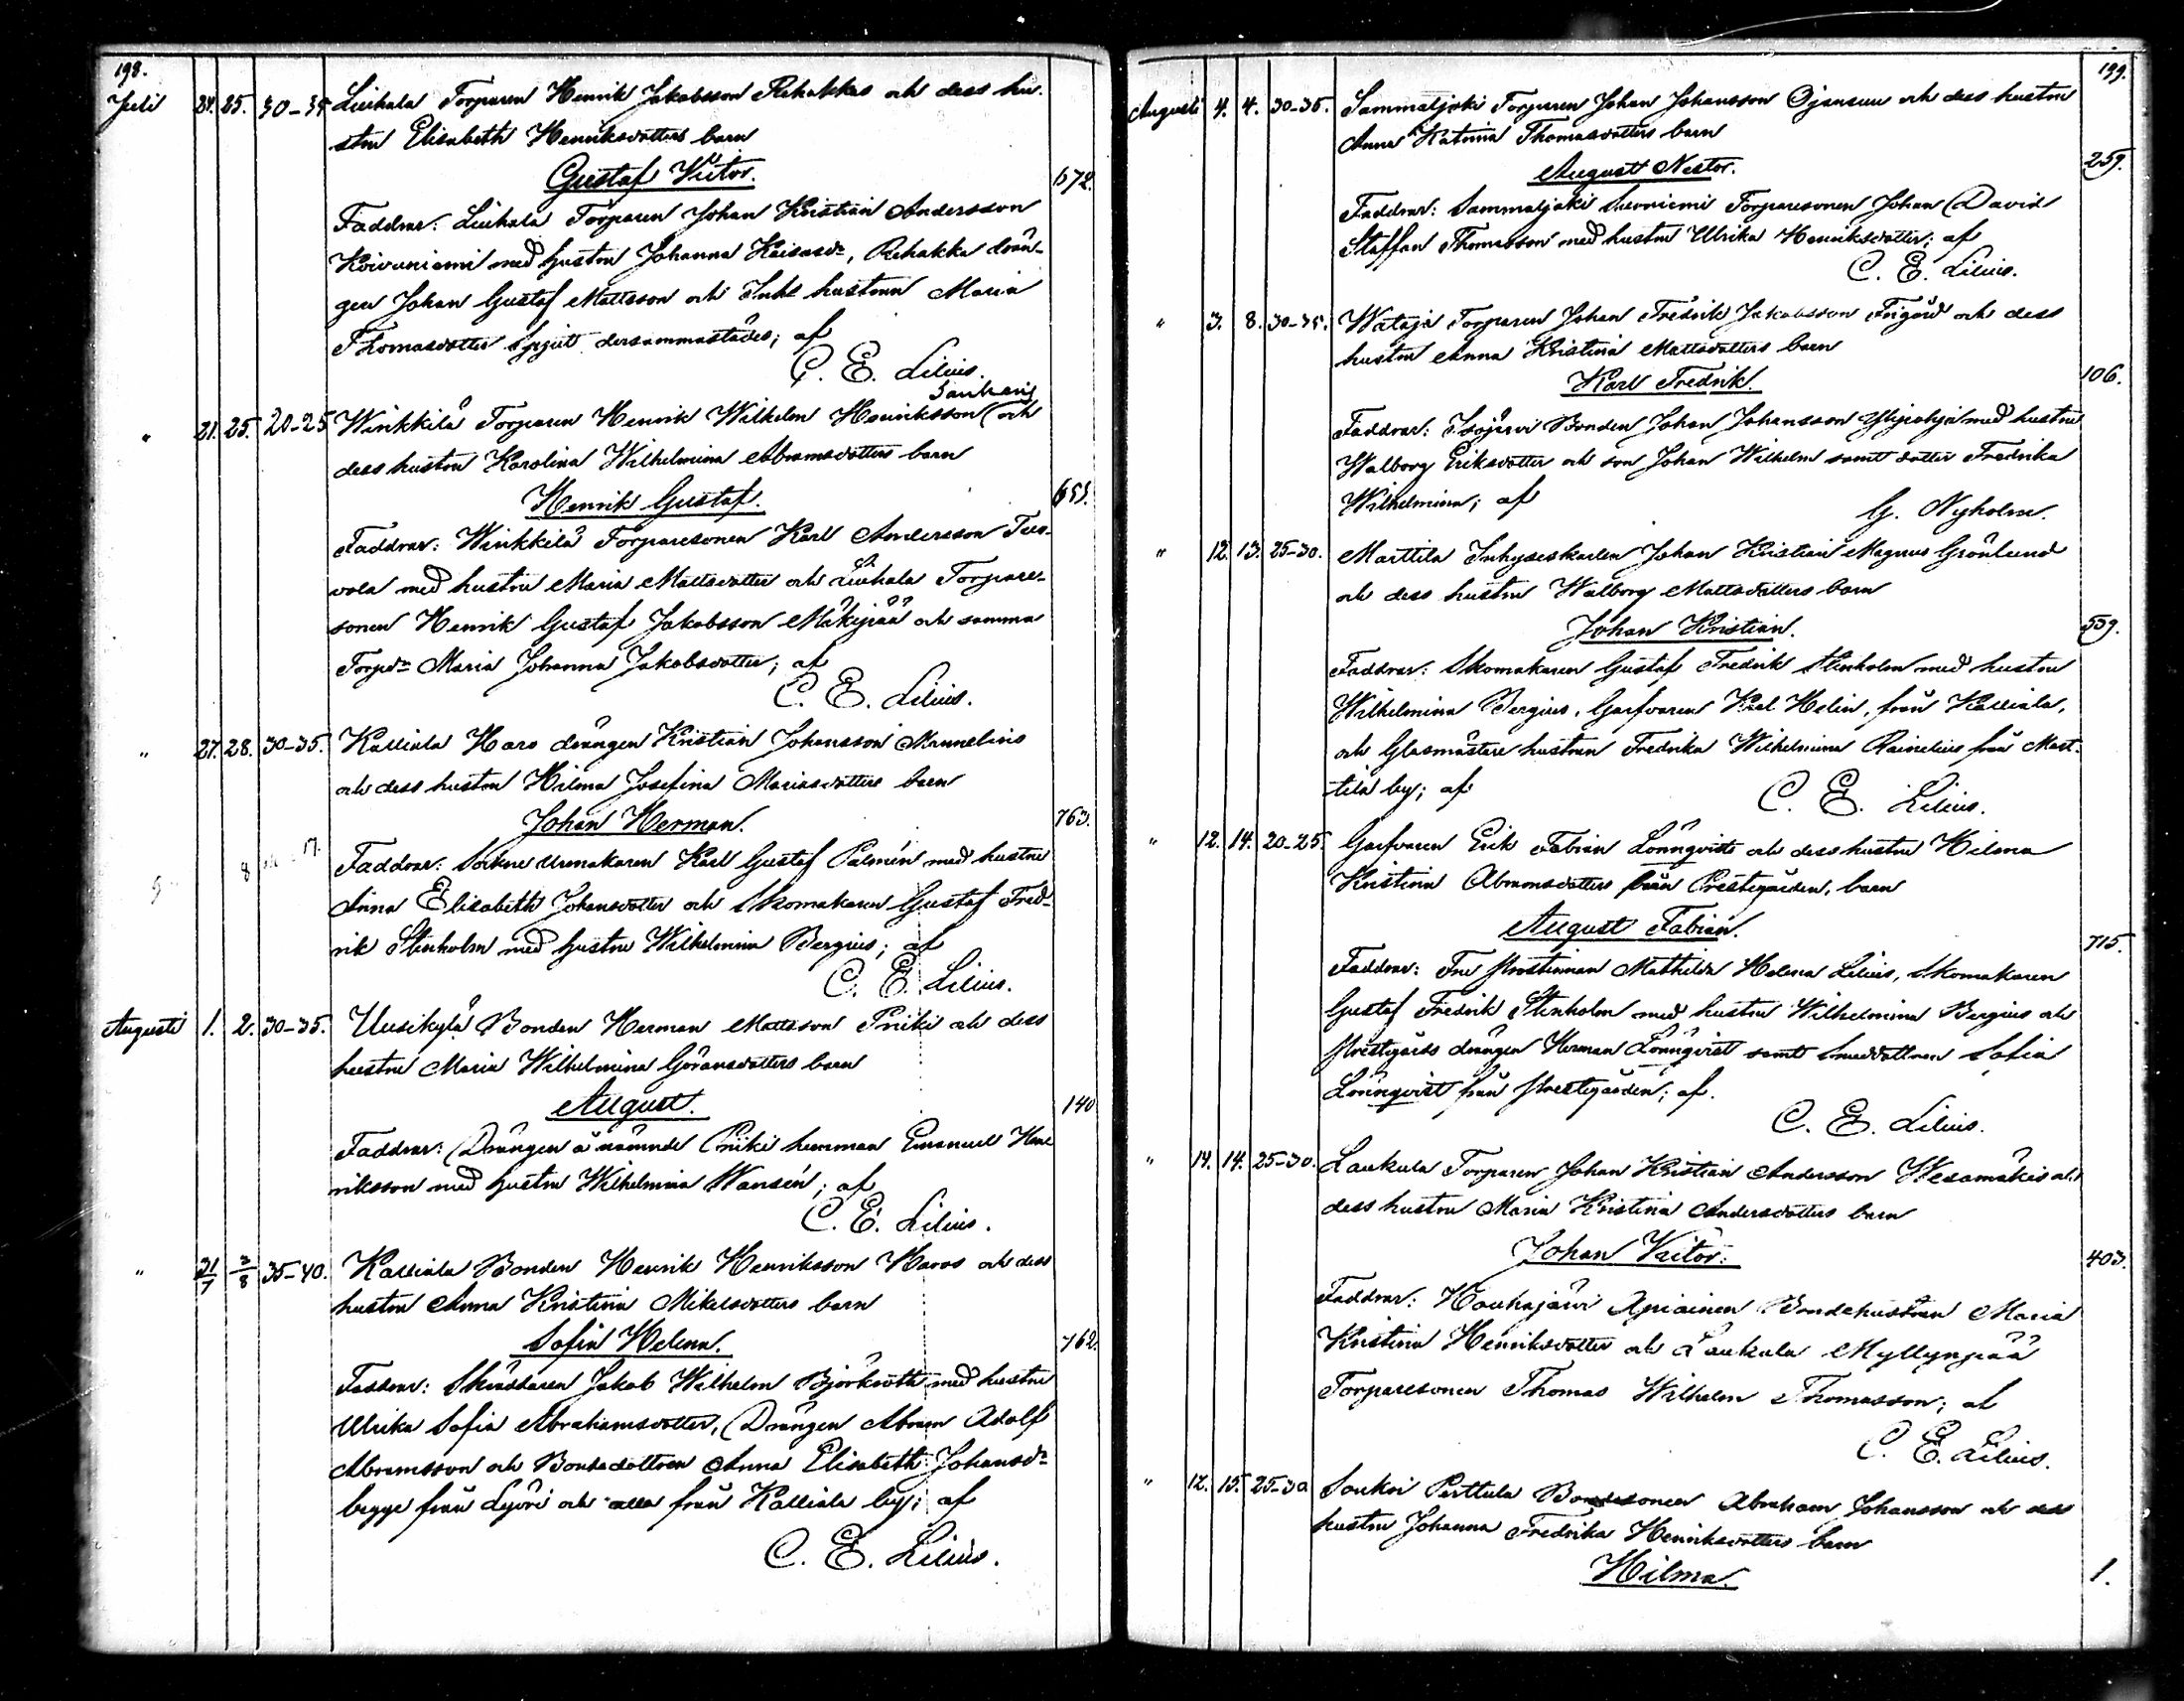 198.
Juli 24. 25. 30-35 Liuhala Torparen Henrik Jakobsson Rehakkas och dess hu-
stru Elisabeth Henriksdotters barn
Gustaf Victor. 672.
Faddrar: Liuhala Torparen Johan Kristian Andersson
Koivuniemi med hustru Johanna Kaisasdr, Rehakka drän-
gen Johan Gustaf Mattsson och Inhs hustrun Maria
Thomasdotter Spjut dersammastädes; af
C. E. Lilius.
Sankaris
" 21. 25. 20-25 Winkkilä Torparen Henrik Wilhelm Henriksson (och
dess hustru Karolina Wilhelmina Abramsdotters barn
Henrik Gustaf. 655.
Faddrar: Winkkilä Torparesonen Karl Andersson Tuo-
vola med hustru Maria Mattsdotter och Liuhala Torpare-
sonen Henrik Gustaf Jakobsson Mäkipää och samma
Torpdr Maria Johanna Jakobsdotter; af
C. E. Lilius.
" 27. 28. 30-35. Kalliala Haro drängen Kristian Johansson Mannelius
och dess hustru Hilma Josefina Mariasdotters barn
Johan Herman. 763.
Faddrar: Sockne urmakaren Karl Gustaf Palmén med hustru
Anna Elisabeth Johansdotter och Skomakaren Gustaf Fred-
rik Stenholm med hustru Wilhelmina Bergius; af
C. E. Lilius.
Augusti 1. 2. 30-35. Uusikylä Bonden Herman Mattsson Pniki och dess
hustru Maria Wilhelmina Göransdotters barn
August. 140
Faddrar: Drängen å nämnde Pniki hemman Emanuel Hen-
riksson med hustru Wilhelmina Wansén; af
C. E. Lilius.
" 31/7 2/8 35-40. Kalliala Bonden Henrik Henriksson Haros och dess
hustru Anna Kristina Mikelsdotters barn
Sofia Helena. 762.
Faddrar: Skräddaren Jakob Wilhelm Björkroth med hustru
Ulrika Sofia Abrahamsdotter, Drängen Abram Adolf
Abramsson och Bondedottren Anna Elisabeth Johansdr
begge från Lyöri och alla från Kalliala by; af
C. E. Lilius.
199.
Augusti 4. 4. 30-35. Sammaljoki Torparen Johan Johansson Ojansuu och dess hustru
Anna Katrina Thomasdotters barn
August Nestor. 259.
Faddrar: Sammaljoki Torparesonen Johan David
Staffan Thomasson med hustru Ulrika Henriksdotter; af
C. E. Lilius.
" 3. 8. 30-35. Wataja Torparen Johan Fredrik Jakobsson Frigård och dess
hustru Anna Kristina Mattsdotters barn
Karl Fredrik. 106.
Faddrar: Isojärvi Bonden Johan Johansson Ylipohja med hustru
Walborg Eriksdotter och son Johan Wilhelm samt dotter Fredrika
Wilhelmina; af
G. Nyholm.
" 12. 13. 25-30. Marttila Inhyseskarlen Johan Kristian Magnus Grönlund
och dess hustru Walborg Mattsdotters barn
Johan Kristian. 559.
Faddrar: Skomakaren Gustaf Fredrik Stenholm med hustru
Wilhelmina Bergius, Garfvaren Karl Helin, från Kalliala,
och Glasmästare hustrun Fredrika Wilhelmina Rainelius från Mart-
tila by; af
C. E. Lilius.
" 12. 14. 20-25. Garfvaren Erik Fabian Lönnqvists och dess hustru Hilma
Kristina Abramsdotters från Prestgården, barn
August Fabian. 715.
Faddrar: Fru Prostinnan Mathilda Helena Lilius, Skomakaren
Gustaf Fredrik Stenholm med hustru Wilhelmina Bergius och
Prestgårds drängen Herman Lönnqvist samt Smeddottren Sofia
Lönnqvist från Prestegården; af
C. E. Lilius.
" 14. 14. 25-30. Laukula Torparen Johan Kristian Andersson Wesamäkis och
dess hustru Maria Kristina Andersdotters barn
Johan Victor. 403.
Faddrar: Houhajärvi Bondehustrun Maria
Kristina Henriksdotter och Laukula Myllynpää
Torparesonen Thomas Wilhelm Thomasson; af
C. E. Lilius.
" 12. 15. 25-30 Soukoi Perttula Bondesonen Abraham Johansson och dess
hustru Johanna Fredrika Henriksdotters barn
Hilma. 1.